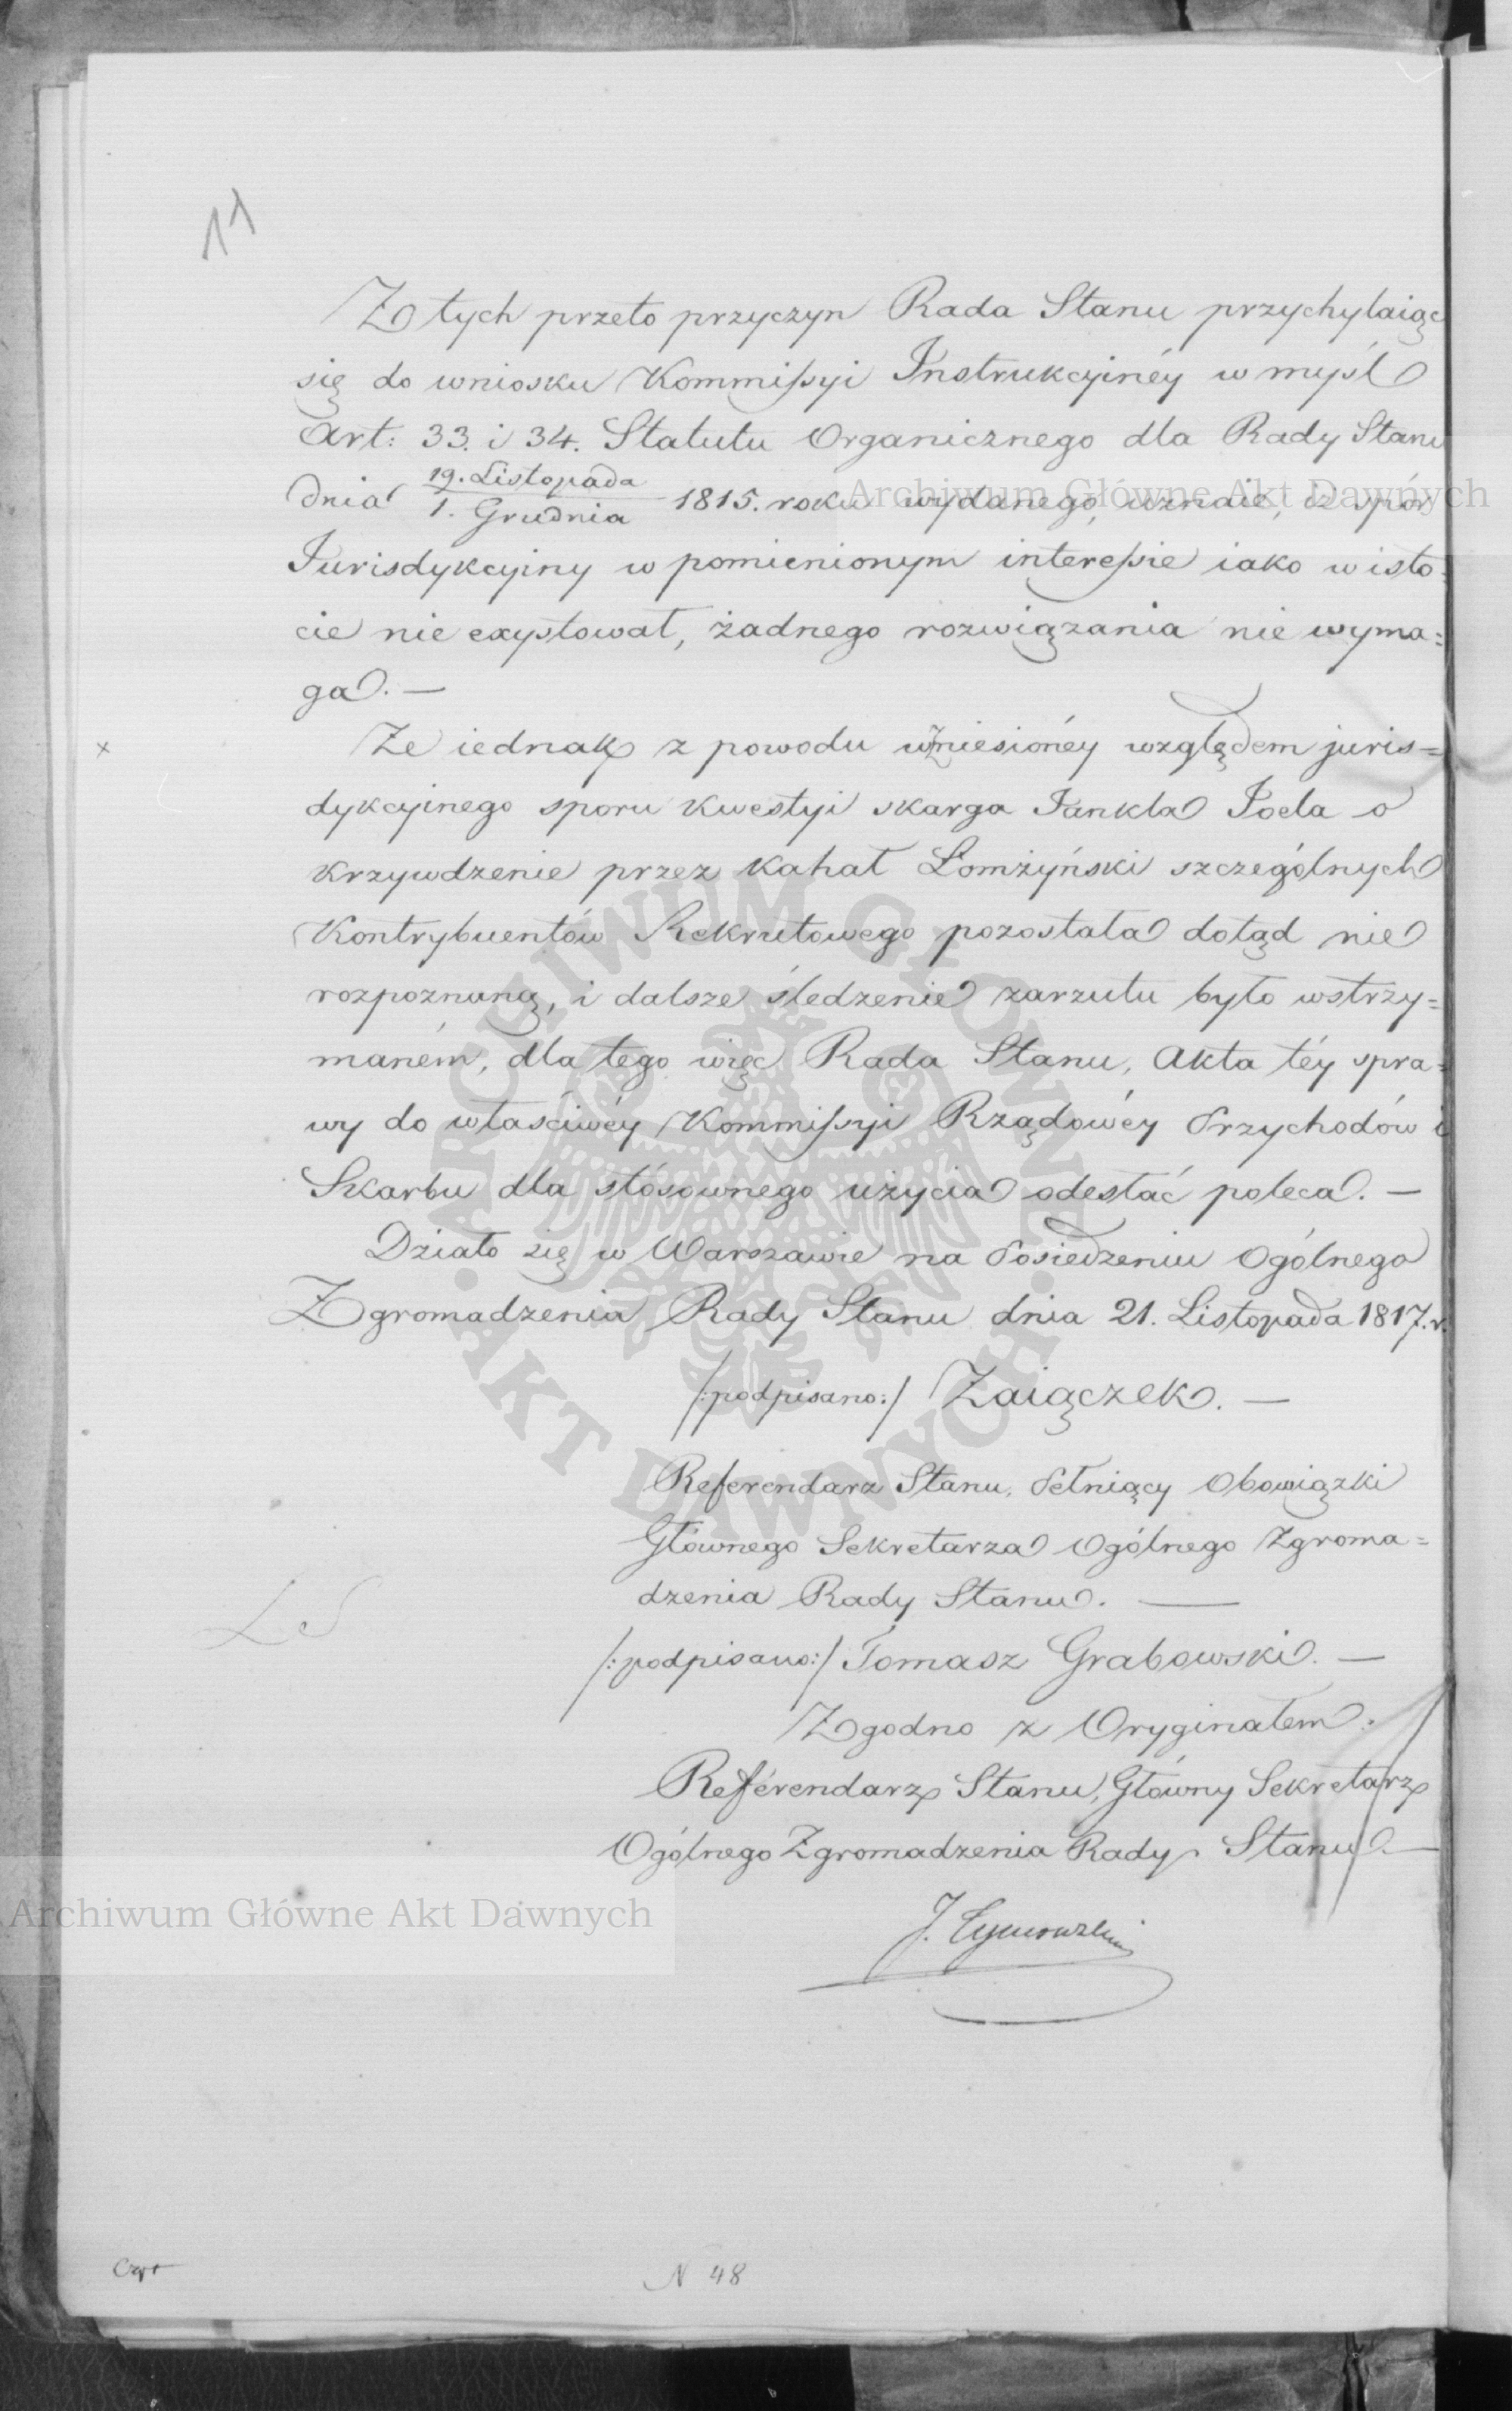 11
Z tych przeto przyczyn Rada Stanu przychylaiąc
się do wniosku Kommissyi Instrukcyinéy w myśl
Art: 33. i 34. Statutu Organicznego dla Rady Stanu
dnia 19. Listopada / 1. Grudnia 1815. roku wydanego, uznaie, iż spór
Jurisdykcyiny w pomienionym interessie iako w isto-
cie nie exystował, żadnego rozwiązania nie wyma=
ga. —
Że iednak z powodu wzniesionéy względem juris=
dykcyinego sporu kwestyi skarga Jankla Joela o
krzywdzenie przez Kahał Łomżyński szczególnych
Kontrybuentów Rekrutowego pozostała dotąd nie
rozpoznaną, i dalsze śledzenie zarzutu było wstrzy=
maném, dla tego więc Rada Stanu, Akta téy spra=
wy do właściwéy Kommissyi Rządowéy Przychodów i
Skarbu dla stósownego użycia odesłać poleca. —
Działo się w Warszawie na Posiedzeniu Ogólnego
Zgromadzenia Rady Stanu dnia 21. Listopada 1817. r.
/:podpisano:/ Zaiączek. —
Referendarz Stanu, Pełniący Obowiązki
Głównego Sekretarza Ogólnego Zgroma=
dzenia Rady Stanu. —
LS
/:podpisano:/ Tomasz Grabowski. —
Zgodno z Oryginałem.
Referendarz Stanu, Główny Sekretarz
Ogólnego Zgromadzenia Rady Stanu —
J.
N 48
Archiwum Główne Akt Dawnych
Archiwum Główne Akt Dawnych
ARCHIWUM GŁÓWNE
AKT DAWNYCH